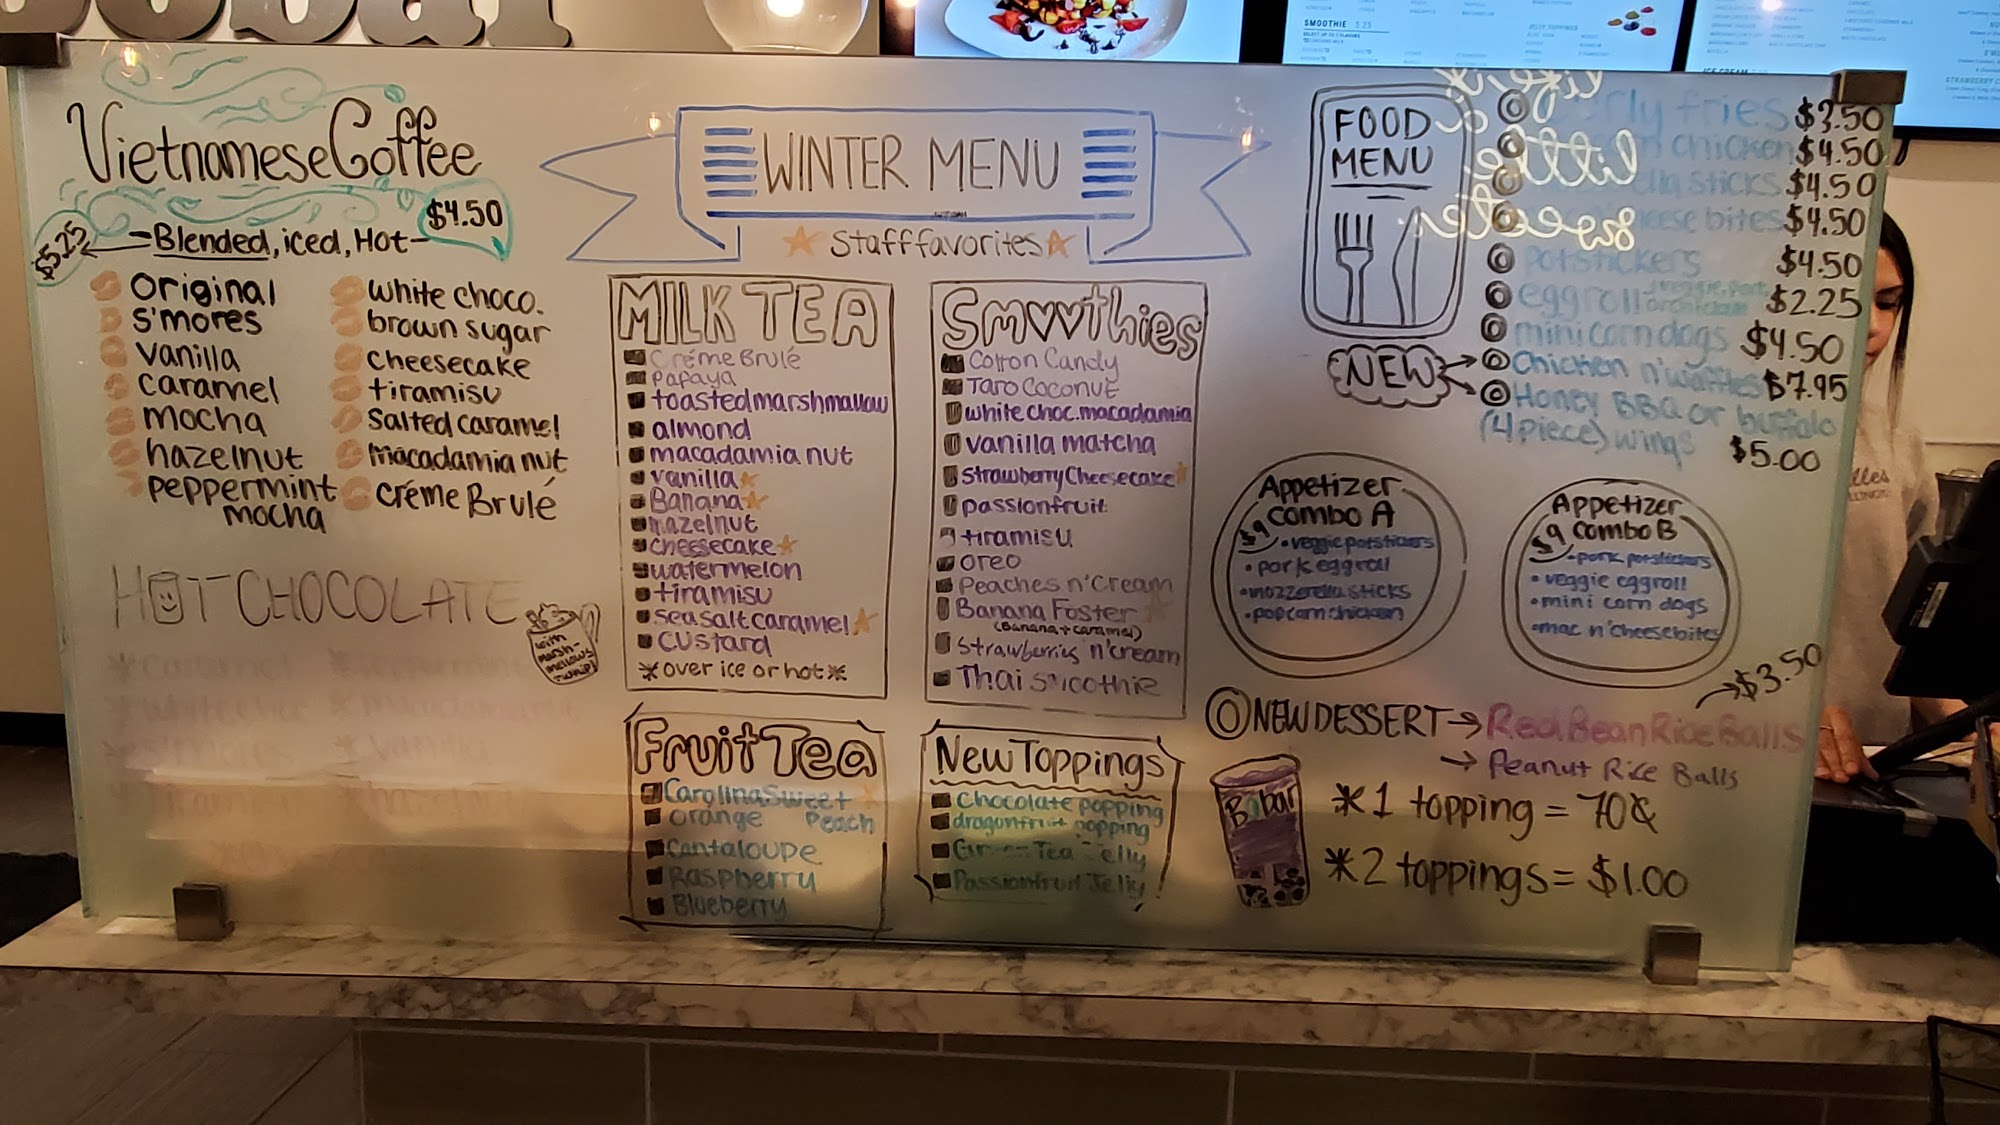 Vietnamese Coffee
$4.50
$5.25
Blended, iced, Hot
original
S'mores
vanilla
caramel
mocha
hazelnut
peppermint
mocha
white choco.
brown sugar
cheesecake
tiramisu
salted caramel
macadamia nut
créme Brulé
HOT CHOCOLATE
with
marsh-
mellows
caramel
peppermint
white choc
macadamia nut
s'mores
vanilla
hazelnut
WINTER MENU
Staff favorites
MILK TEA
Créme Brulé
papaya
toasted marshmallow
almond
macadamia nut
vanilla
Banana
hazelnut
cheesecake
watermelon
tiramisu
sea salt caramel
custard
*over ice or hot*
Smoothies
Cotton Candy
Taro Coconut
white choc. macadamia
vanilla matcha
Strawberry Cheesecake
passionfruit
tiramisu
oreo
Peaches n' Cream
Banana Foster
(Banana + caramel)
Strawberries n' cream
Thai smoothie
Fruit Tea
Carolina Sweet
orange Peach
Cantaloupe
Raspberry
Blueberry
New Toppings
Chocolate popping
dragonfruit popping
Green Tea Jelly
Passionfruit Jelly
FOOD
MENU
life is
a little
sweeter
curly fries $3.50
chicken $4.50
sticks $4.50
cheese bites $4.50
potstickers $4.50
eggroll veggie, pork or chicken $2.25
mini corn dogs $4.50
NEW
Chicken n' waffles $7.95
Honey BBQ or buffalo
(4 piece) wings $5.00
Appetizer
combo A
$9
• veggie potstickers
• pork eggroll
• mozzerella sticks
• popcorn chicken
Appetizer
combo B
$9
• pork potstickers
• veggie eggroll
• mini corn dogs
• mac n' cheese bites
NEW DESSERT → Red Bean Rice Balls
$3.50
→ Peanut Rice Balls
Bobar
*1 topping = 70¢
*2 toppings = $1.00
SMOOTHIE 5.25